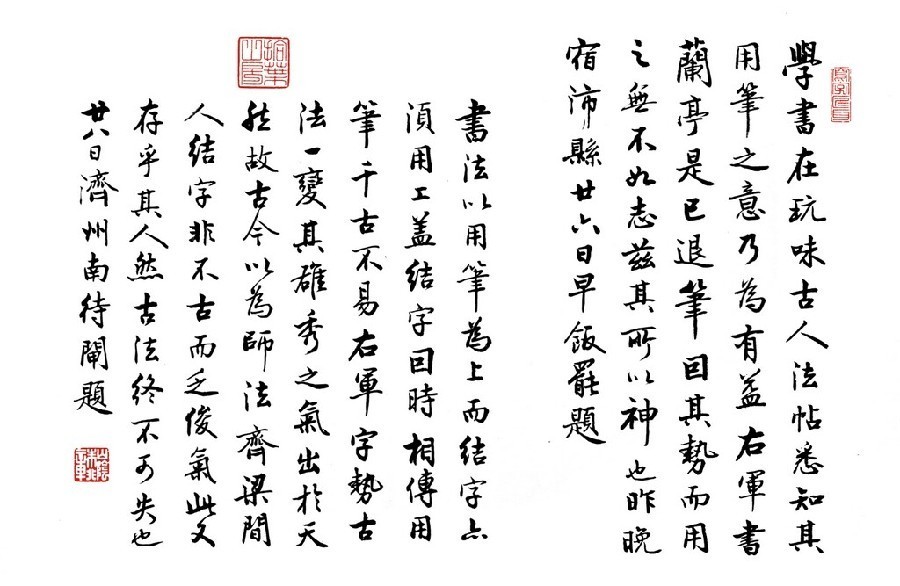 學書在玩味古人法帖悉知其
用筆之意乃為有益右軍書
蘭亭是已退筆因其勢而用
之無不如志茲其所以神也昨晚
宿沛縣廿六日早飯罷題
書法以用筆為上而結字亦
須用工盖結字因時相傳用
筆千古不易右軍字勢古
法一變其雄秀之氣出於天
然故古今以為師法齊梁間
人結字非不古而乏俊氣此又
存乎其人然古法終不可失也
廿八日濟州南待閘題
拾葉山房